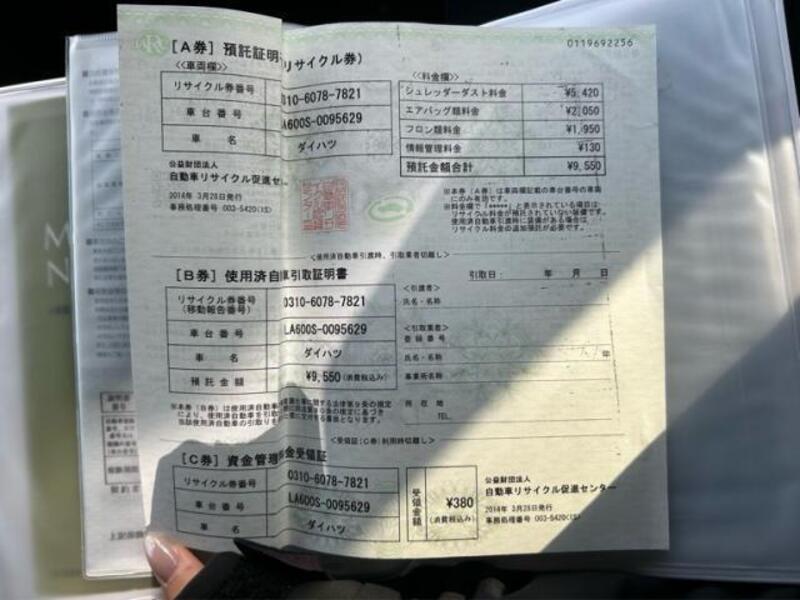 0119692256
[A券] 預託証明
リサイクル券)
<<車両欄>>
リサイクル券番号
0310-6078-7821
車台番号
LA600S-0095629
車 名
ダイハツ
<<料金欄>>
シュレッダーダスト料金 ¥5,420
エアバッグ類料金 ¥2,050
フロン類料金 ¥1,950
情報管理料金 ¥130
預託金額合計 ¥9,550
公益財団法人
自動車リサイクル促進セ
2014年 3月28日発行
事務処理番号 003-5420(IS)
※本券(A券)は車両欄記載の車台番号の車両
にのみ有効です。
※料金欄で「*****」と表示されている項目は
リサイクル料金が預託されていない装備です。
使用済自動車引渡時に装備がある場合は、
リサイクル料金の追加預託が必要です。
<使用済自動車引渡時、引取業者切離し>
[B券] 使用済自車引取証明書
引取日: 年 月 日
リサイクル券番号
(移動報告番号)
0310-6078-7821
車台番号
LA600S-0095629
車 名
ダイハツ
預託金額
¥9,550(消費税込み)
<引渡者>
氏名・名称
<引取業者>
登録番号
氏名・名称
事業所名称
所在地
TEL
※本券(B券)は使用済自動車
により、使用済自動車を引取
<受領証:C券)利用時切離し>
[C券] 資金管理料金受領証
リサイクル券番号
0310-6078-7821
車台番号
LA600S-0095629
車 名
ダイハツ
受領金額
¥380
(消費税込み)
公益財団法人
自動車リサイクル促進センター
2014年 3月28日発行
事務処理番号 003-5420(IS)